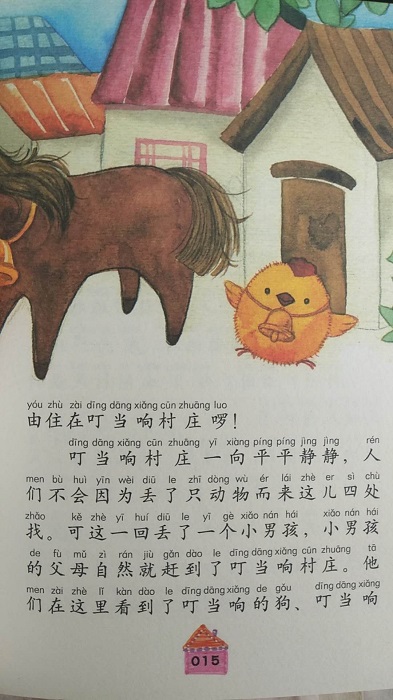 yóu zhù zài dīng dāng xiǎng cūn zhuāng luo
由住在叮当响村庄啰!
dīng dāng xiǎng cūn zhuāng yī xiàng píng píng jìng jìng rén
叮当响村庄一向平平静静,人
men bù huì yīn wèi diū le zhī dòng wù ér lái zhè er sì chù
们不会因为丢了只动物而来这儿四处
zhǎo kě zhè yī huí diū le yī gè xiǎo nán hái xiǎo nán hái
找。可这一回丢了一个小男孩,小男孩
de fù mǔ zì rán jiù gǎn dào le dīng dāng xiǎng cūn zhuāng tā
的父母自然就赶到了叮当响村庄。他
men zài zhè lǐ kàn dào le dīng dāng xiǎng de gǒu dīng dāng xiǎng
们在这里看到了叮当响的狗、叮当响
015